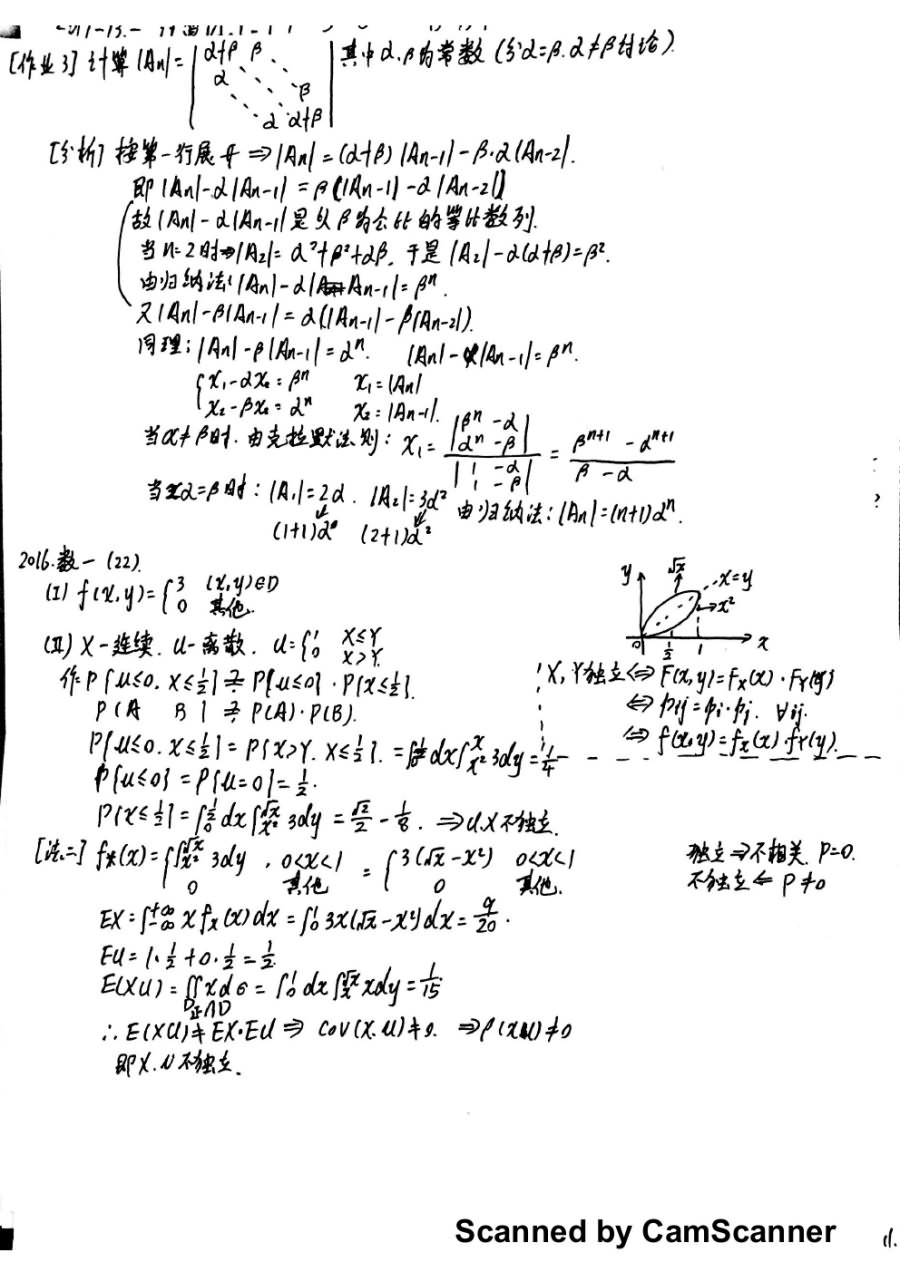 [作业3] 计算|An|= |α+β β α β α α+β| 其中α.β为常数(分α=β.α≠β讨论).
[分析] 按第一行展开⇒|An|=(α+β)|An-1|-β·α|An-2|.
即|An|-α|An-1|=β(|An-1|-α|An-2|)
故|An|-α|An-1|是以β为公比的等比数列.
当n=2时⇒|A2|=α²+β²+αβ, 于是|A2|-α(α+β)=β².
由归纳法:|An|-α|An-1|=βⁿ.
又|An|-β|An-1|=α(|An-1|-β|An-2|).
同理:|An|-β|An-1|=αⁿ. |An|-α|An-1|=βⁿ.
{x₁-αx₂=βⁿ x₁=|An|
x₂-βx₂=αⁿ x₂=|An-1|.
当α≠β时.由克拉默法则: x₁= |βⁿ -α; αⁿ -β| / |1 -α; 1 -β| = (βⁿ⁺¹-αⁿ⁺¹)/(β-α)
当α=β时:|A₁|=2α. |A₂|=3α² 由归纳法:|An|=(n+1)αⁿ.
(1+1)α (2+1)α²
2016.数一(22).
(I) f(x,y)={3 (x,y)∈D
0 其他.
y √x x=y x² 0 1/2 1 x
(II) X-连续. U-离散. U={1 X≤Y
0 X>Y.
作P{U≤0. X≤1/2} ?= P{U≤0}·P{X≤1/2}.
P(A B) ?= P(A)·P(B).
X,Y独立⇔F(x,y)=Fx(x)·FY(y)
⇔pij=pi·pj. ∀ij.
⇔f(x,y)=fx(x)·fY(y).
P{U≤0. X≤1/2}=P{X>Y. X≤1/2}.=∫₀^½dx∫_{x²}^x 3dy=1/4
P{U≤0}=P{U=0}=1/2.
P{X≤1/2}=∫₀^½dx∫_{x²}^{√x} 3dy=√2/2-1/8. ⇒U.X不独立.
[法二] fx(x)={∫_{x²}^{√x} 3dy , 0<x<1 = {3(√x-x²) 0<x<1
0 其他 0 其他.
独立⇒不相关. ρ=0.
不独立⇐ρ≠0
EX=∫_{-∞}^{+∞} x fx(x)dx=∫₀¹3x(√x-x²)dx=9/20.
EU=1·1/2+0·1/2=1/2.
E(XU)=∬_{D正∩D} xdσ=∫₀¹dx∫_x^{√x} xdy=1/15
∴E(XU)≠EX·EU⇒COV(X.U)≠0. ⇒ρ(XU)≠0
即X.U不独立.
Scanned by CamScanner